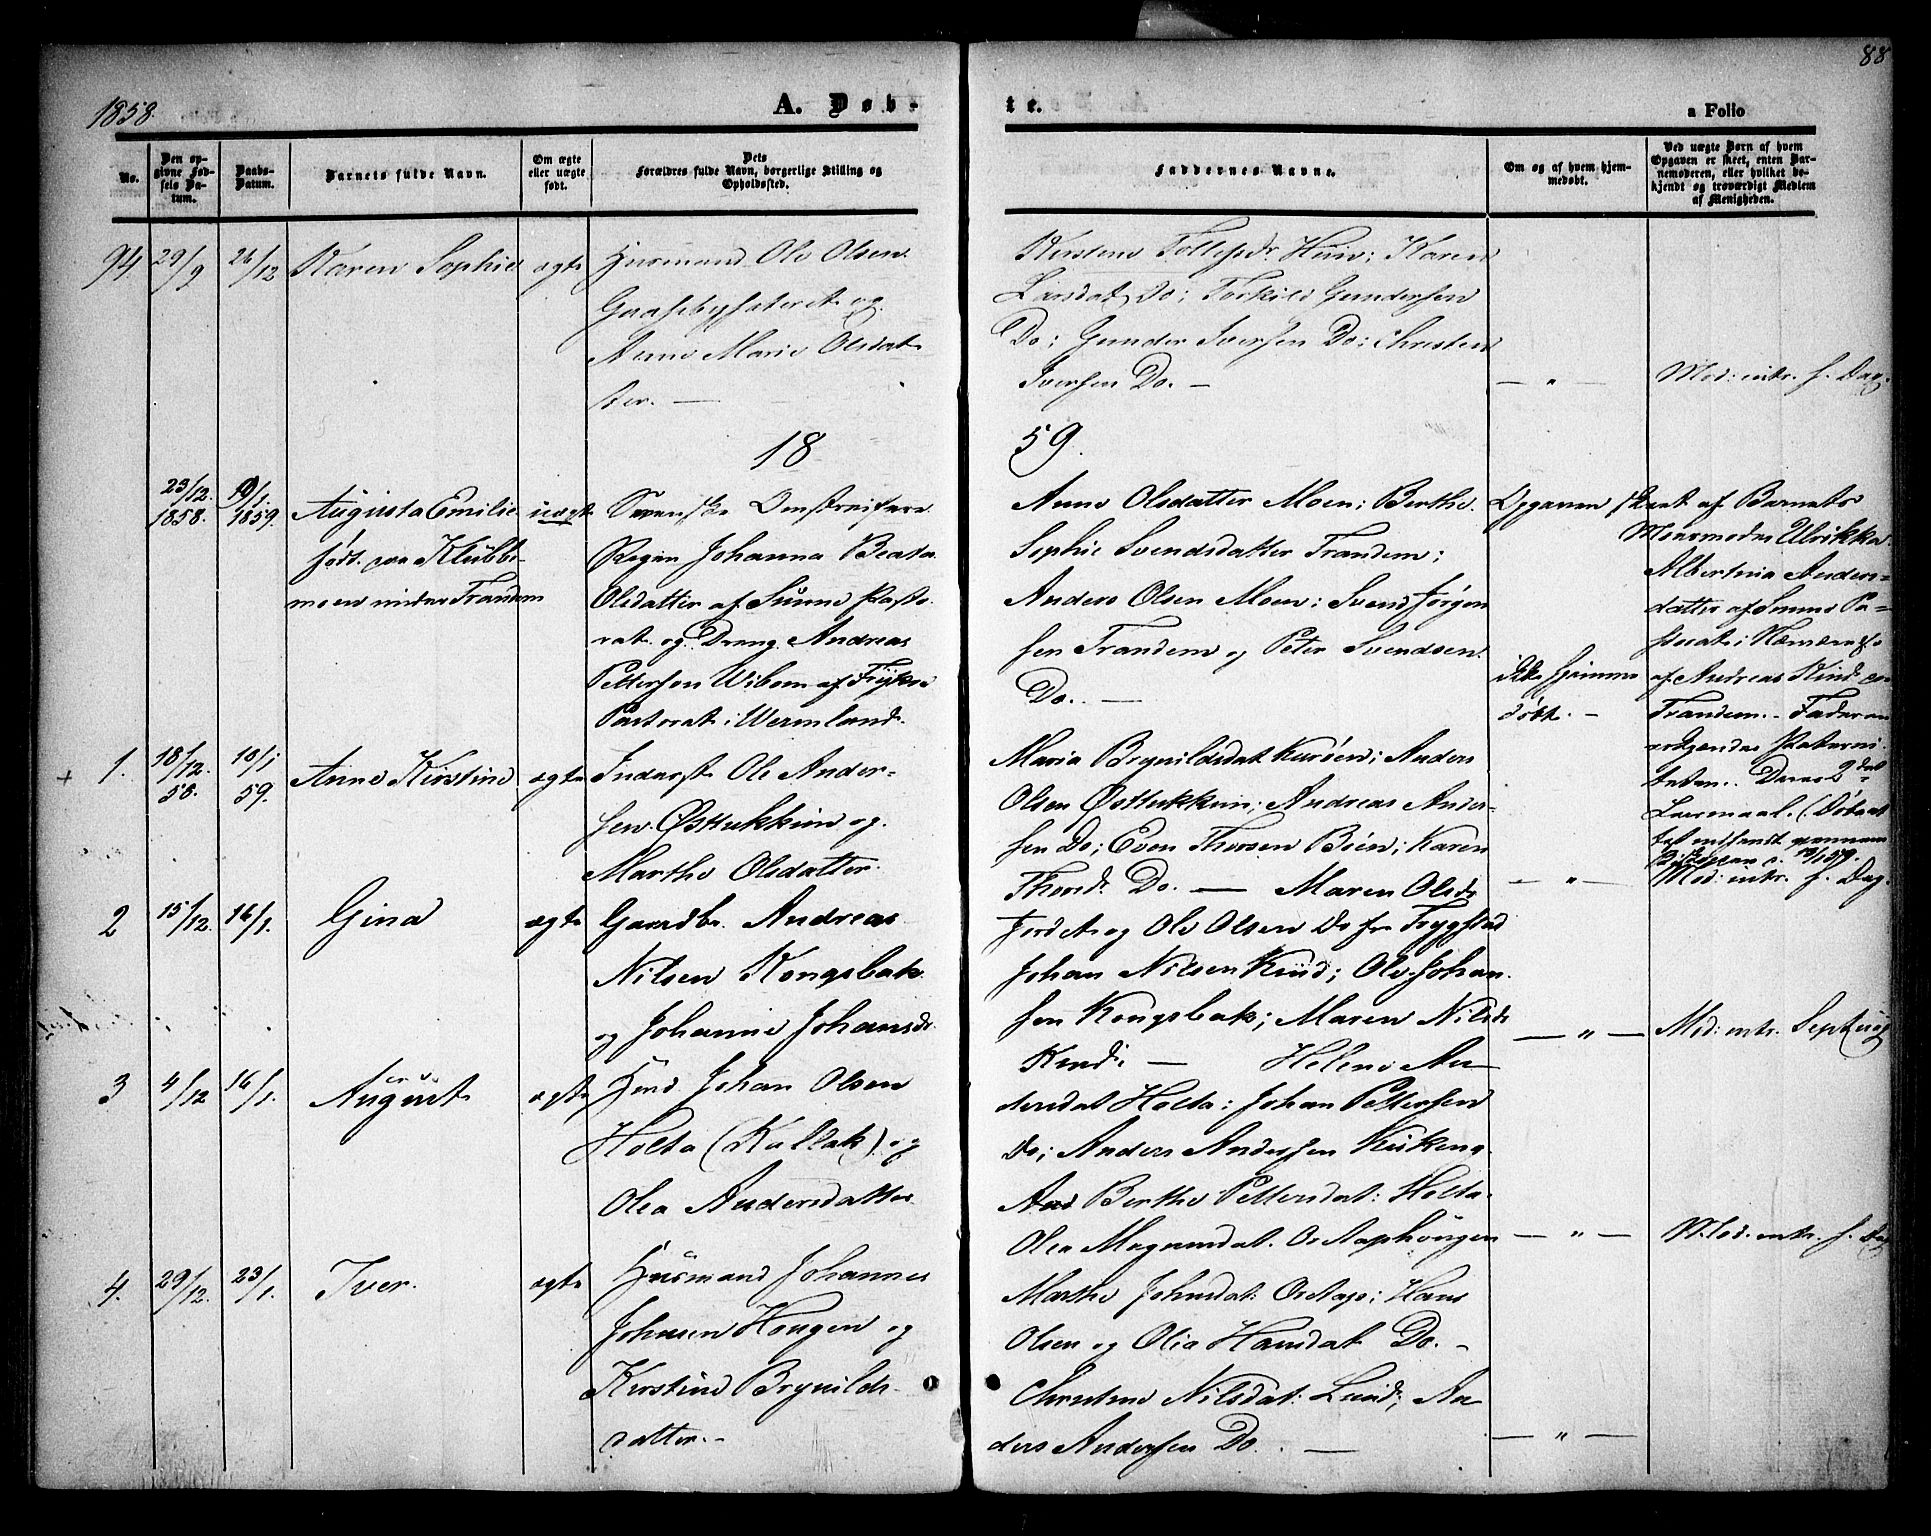 1858.
A. Døb-
te.
a Folio
88
No.
Den op-
givne Fød-
sels Da-
tum.
Daabs-
Datum.
Barnets fulde Navn.
Om ægte
eller uægte
født.
Dets
Forældres fulde Navn, borgerlige Stilling og
Opholdssted.
Faddernes Navne.
Om og af hvem hjem-
medøbt.
Ved uægte Børn af hvem
Opgaven er skeet, enten Bar-
nemoderen, eller hvilket be-
kjendt og troværdigt Medlem
af Menigheden.
94.
29/9
26/12
Karen Sophie
ægte
Huusmand Ole Olsen
og
Anne Marie Olsdat-
ter. —
Kirsten Huin; Karen
Larsdat Do; Torkild Gundersen
Do; Gunder Iversen Do; Christen
Iversen Do. —
— " —
Mod: intr. s. Dag.
18
59.
23/12.
1858.
19/1.
1859.
Augusta Emilie
født paa Klubbe-
moen under Trandem
uægte
Svenske Omstreifere
Pigen Johanna Beata
Olsdatter af Sunne Pasto-
rat og Dreng Andreas
Pettersen Wibom af
Pastorat i Wermland.
Anne Olsdatter Moen; Berthe
Sophie Svendsdatter Trandem;
Anders Olsen Moen; Svend Jørgen-
sen Trandem og Peter Svendsen
Do. —
ikke hjemme
døbt. —
Opgaven skeet af Barnets
Mormoder Ulrikka
Albertina Anders-
datter af Sunne Pa-
storat i
af Andreas Kind
Trandem. Faderen
Paterni-
teten. Deres 2det
Leiermaal. (Døbeat-
test
+ 1.
18/12.
58.
10/1
59.
Anne Kirstine
ægte
Inderst Ole Ander-
sen Østtukkun og
Marthe Olsdatter.
Maria Brynildsdat Kurøen; Anders
Olsen Østtukkun; Andreas Ander-
sen Do; Even Thorsen Bøen; Karen
Thorsd. Do. —
— " —
Mod: intr. s. Dag.
2
15/12.
16/1.
Gina
ægte
Gaardbr. Andreas
Nilsen Kongsbak
og Johanne Johansdr.
Maren Olsdr
Jordet og Ole Olsen Do fra Trygstad
Johan Nilsen Kind; Ole Johan-
sen Kongsbak; Maren Nilsdr
Kind. —
— " —
Mod: intr.
3
4/12
16/1.
August
ægte
Huusmd Johan Olsen
Holta (Kallak) og
Olea Andersdatter
Helene An-
dersdat Holta; Johan Pettersen
Do; Anders Andersen
Berthe Pettersdat: Holta
— " —
Mod. intr. s. Dag
4.
29/12.
23/1.
Iver.
ægte
Huusmand Johannes
Johnsen Hougen og
Kirstine Brynilds-
datter. —
Olea Magnusdat.
Marthe Johnsdat: Hans
Olsen og Olia Hansdat Do. —
Christine Nilsdat: Lund; An-
ders Andersen Do. —
— " —